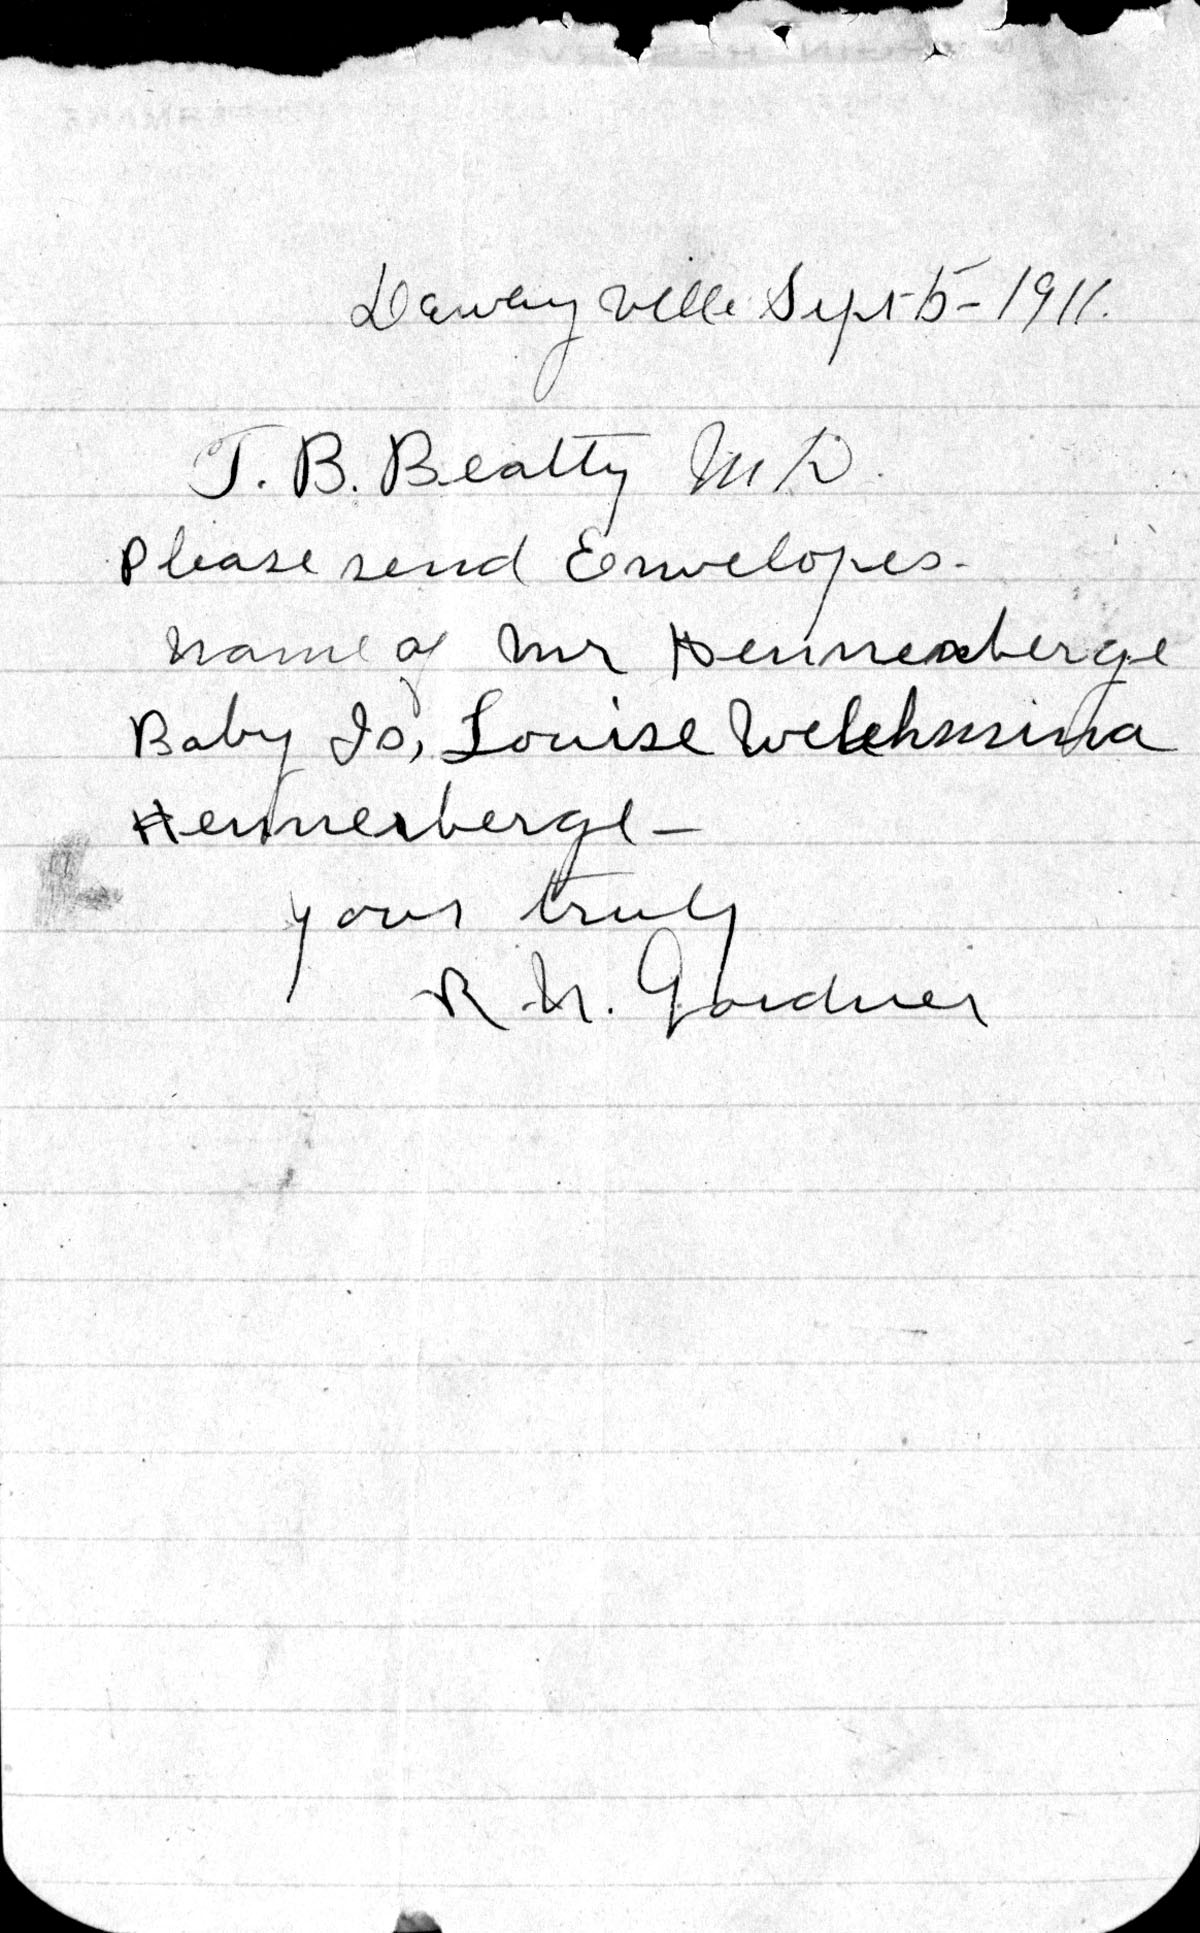 Deweyville Sept 5 - 1911.
T. B. Beatty M D.
Please send Envelopes.
Name of Mr Hennenberge
Baby Is, Louise
Hennerberge -
yours truly
R N. Gardner